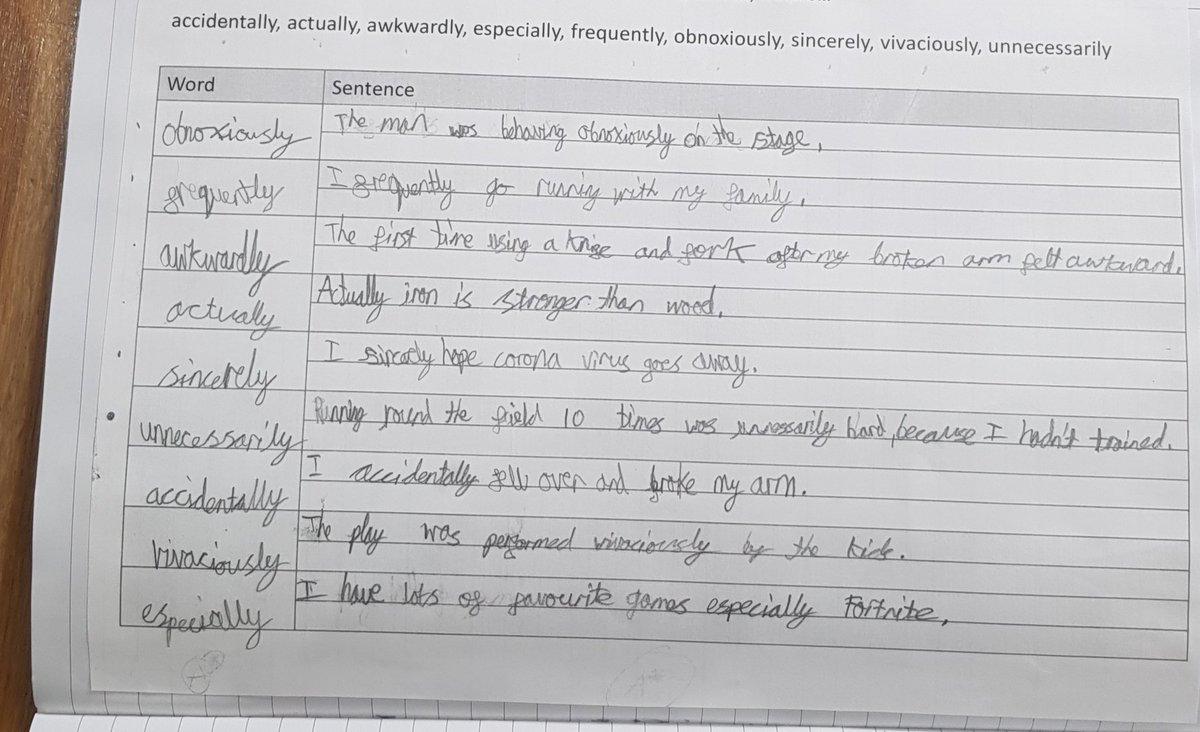 accidentally, actually, awkwardly, especially, frequently, obnoxiously, sincerely, vivaciously, unnecessarily
Word Sentence
obnoxiously The man was behaving obnoxiously on the stage.
frequently I frequently go running with my family.
awkwardly The first time using a knife and fork after my broken arm felt awkward.
actually Actually iron is stronger than wood.
sincerely I sincerly hope corona virus goes away.
unnecessarily Running round the field 10 times was unnessarily hard, because I hadn't trained.
accidentally I accidentally fell over and broke my arm.
vivaciously The play was performed vivaciously by the kids.
especially I have lots of favourite games especially Fortnite.